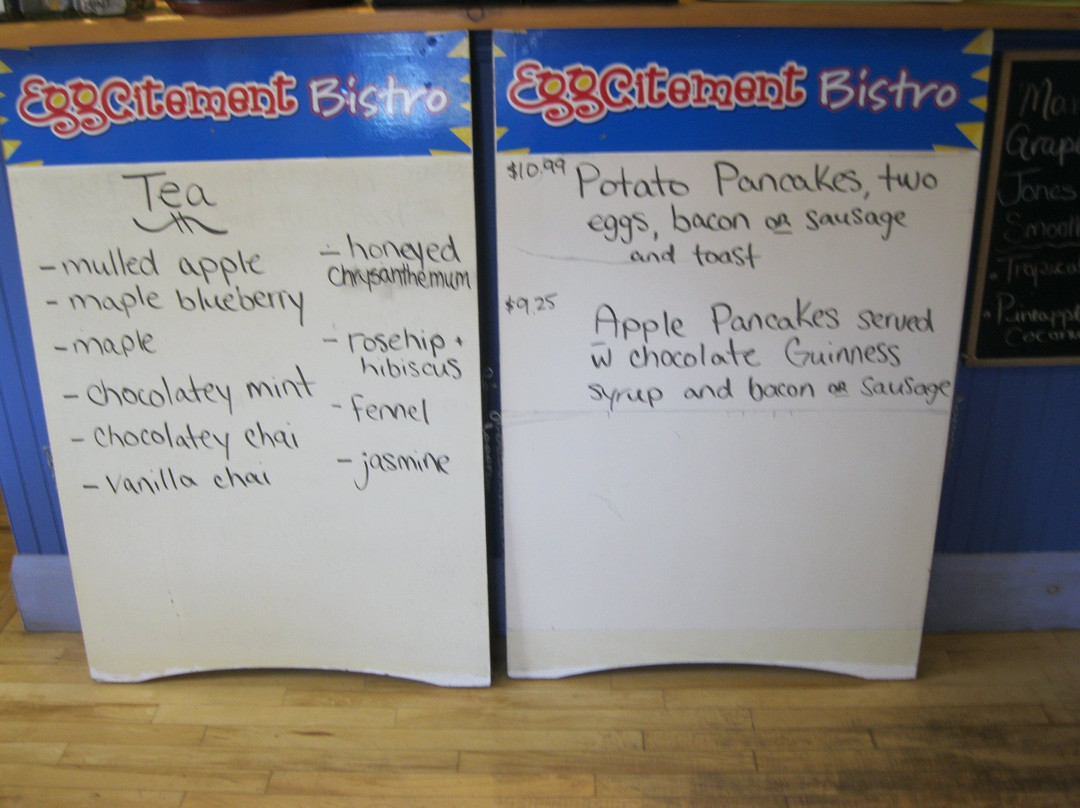 EggCitement Bistro
Tea
- mulled apple
- maple blueberry
- maple
- chocolatey mint
- chocolatey chai
- vanilla chai
- honeyed
chrysanthemum
- rosehip +
hibiscus
- fennel
- jasmine
EggCitement Bistro
$10.99 Potato Pancakes, two
eggs, bacon or sausage
and toast
$9.25 Apple Pancakes served
w chocolate Guinness
syrup and bacon or sausage
Jones